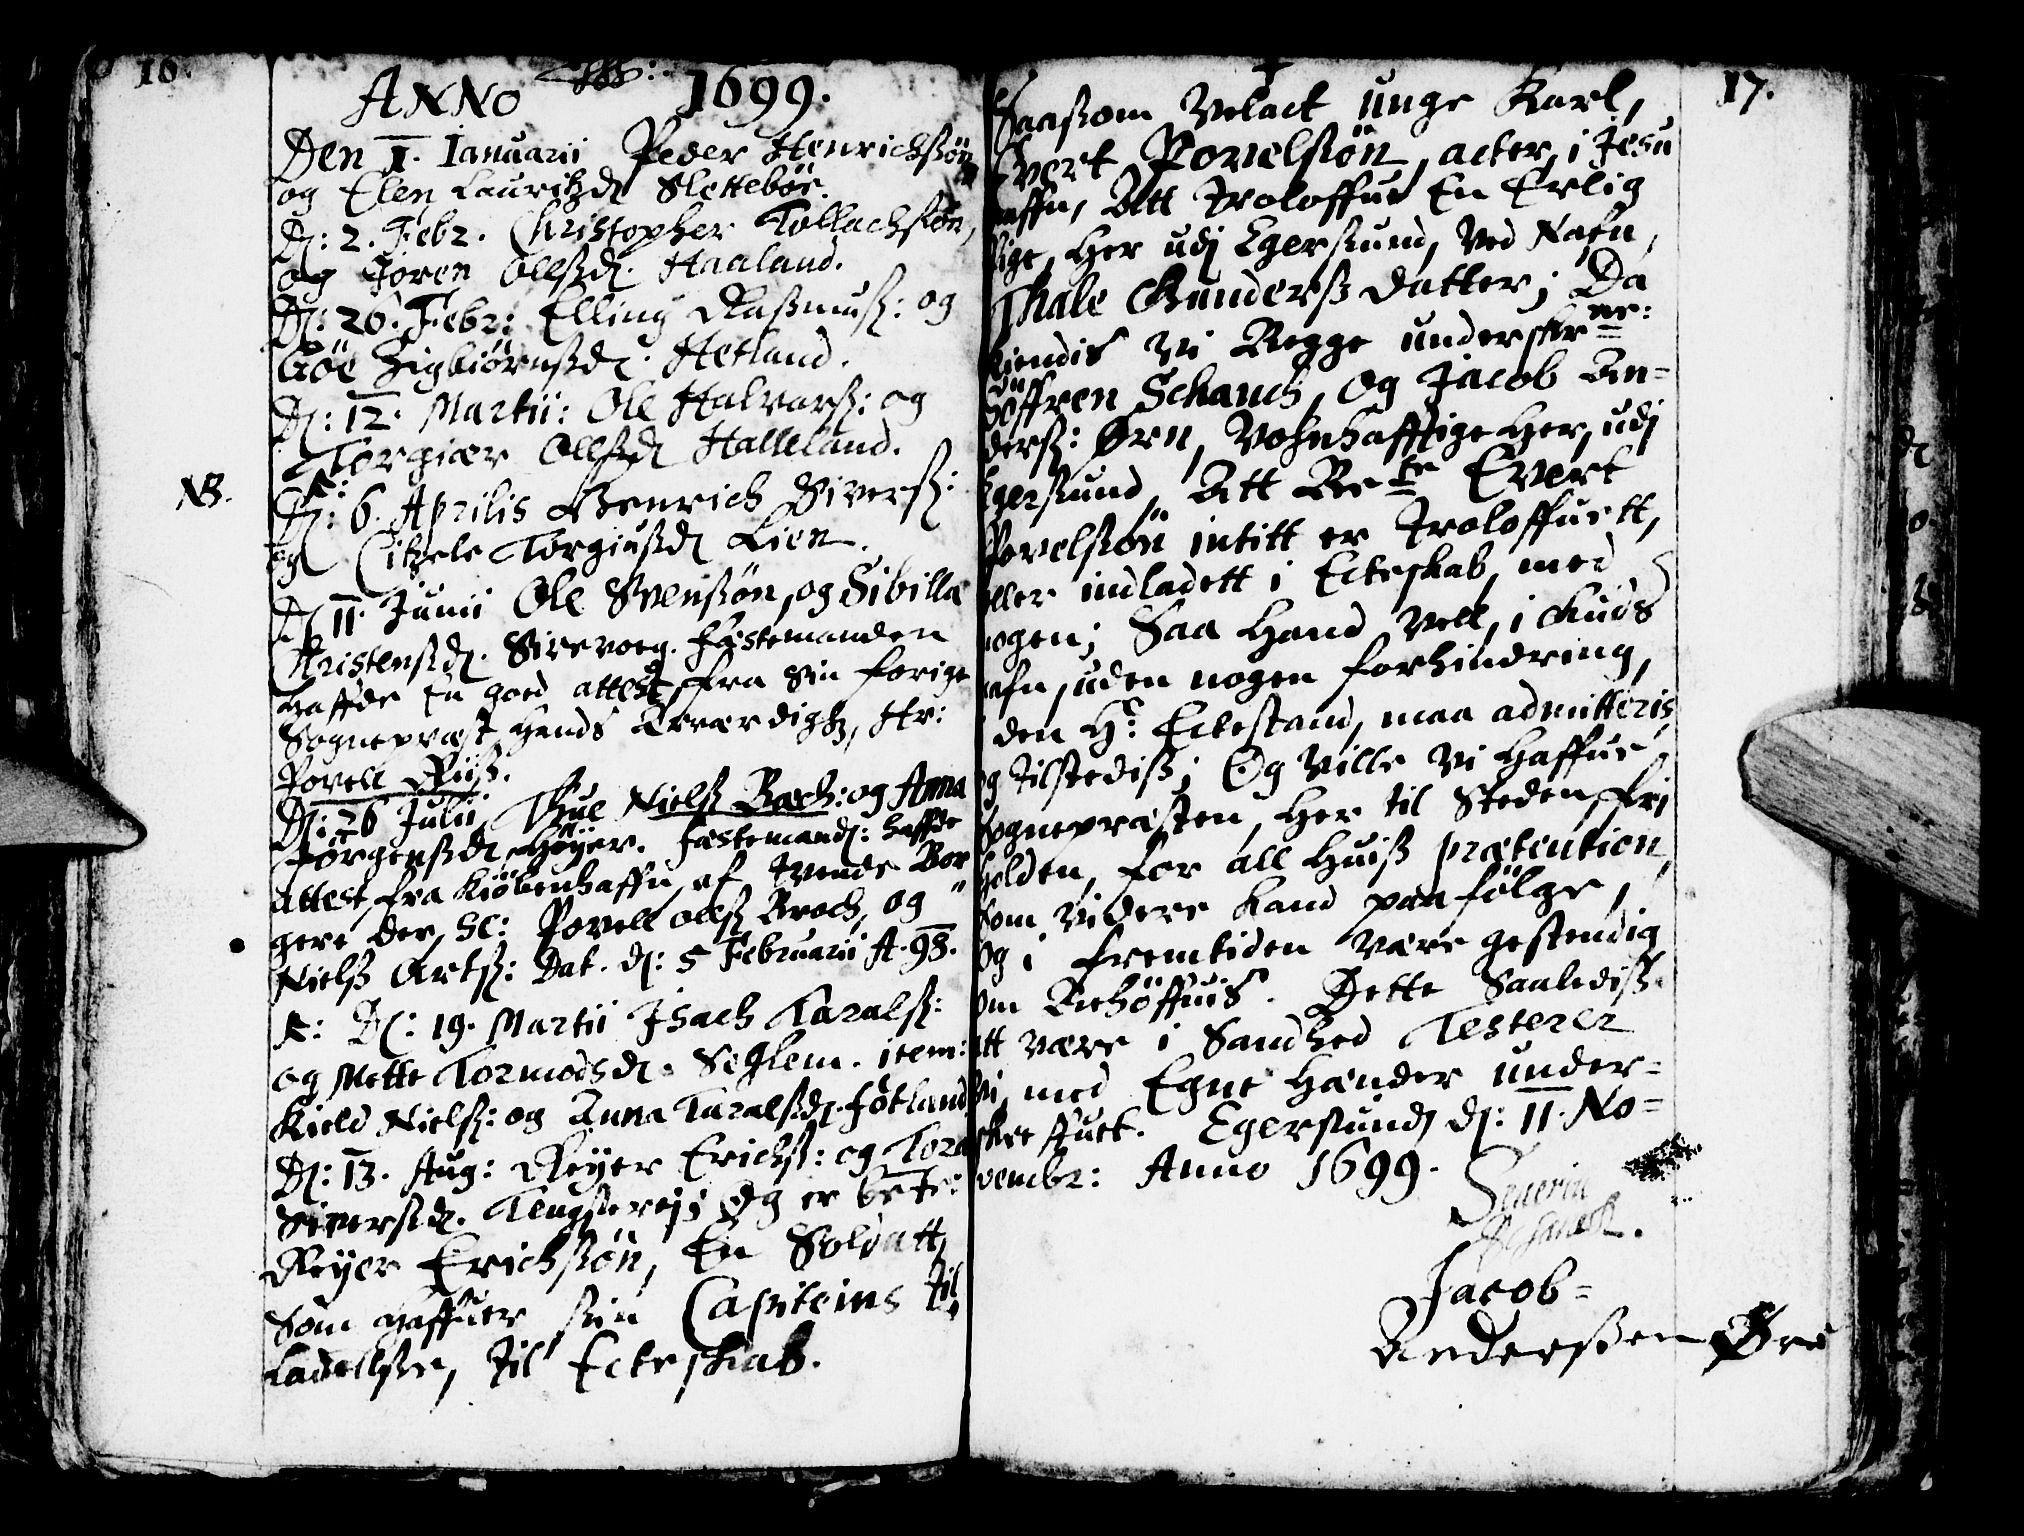 16.
ANNO 1699.
Den 1. Ianuarii Peder Henrichßøn
og Elen Lauritzd Slettebøe.
D: 2. Febr. Christopher Tollachßøn,
og Joren Ollßd. Haaland.
D: 26. Febr: Elling Raßmuß: og
Gøe Sigbiørnßd. Hetland.
D: 12. Martii: Ole Halvarß: og
Torgier Ollßd Halleland.
NB.
D: 6. Aprilis Henrich Siverß:
og Citzele Torgiußd Lien.
D 11 Junii Ole Svenßøn, og Sibilla
Kristenßd. Sirevoeg. Fæstemanden
haffde En goed attest, fra Sin forige
Sognepræst, Hands Ærværdigh, Hr:
Povell Riiß.
D: 26 Julii, Thue Nielß Bach: og Anna
Jørgenßd. Høyer. Fæstemand: haffde
attest fra Kiøbenhaffn, af tvende Bor
gere der, Sc: Povell Ollß Broch, og
Nielß Artß: Dat. d: 5 Februarii A. 98.
K: D: 19. Martii Isach Taralß:
og Mette Tormodsd. Seglem. item:
Kield Nielß: og Anna Taralßd. Føtland
D: 13. Aug: Reyer Erichß: og Tora
Siverßd. Tengßereij; Og er bete:
Reyer Erichßøn, En Soldatt,
Som haffuer sin Capiteins til
ladellße, til Ecteskab.
17.
Saaßom Velact unge Karl,
Evert Povelßøn, acter, i Jesu
naffn, Att Troloffue En Erlig
Pige, Her udj Egerßund, Ved Nafn,
Thale Gunderß datter; Da
kiendis Vi Begge underskrne:
Søffren Schanch, Og Jacob An=
derß: Ørn, Vohnhafftige Her, udj
Egerßund, Att Bete Evert
Povelßøn intitt er Troloffuett,
eller indladett i Ecteskab, med
nogen; Saa Hand Vell, i Guds
nafn, uden nogen forhindring,
i den H: Ectestand, maa admitteris,
og Tilstediß; Og Ville Vi Haffue
Sognepræsten, Her til Steden, fri
holden, for all Huiß prætention,
som Videre Kand paafølge,
Og i fremtiden Være gestendig
om Behøffuis. Dette Saalediß
att være i Sandhed Testerer
Vi, med Egne Hænder under=
skreffuet. Egerßund, d: 11. No=
vembr: Anno 1699.
Severin
Schanch.
Jacob=
Anderßen Ørn